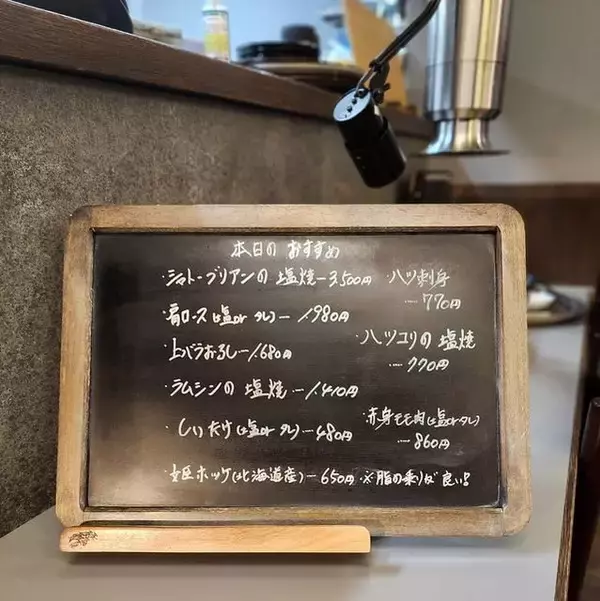 本日の おすすめ
・シャトーブリアンの 塩焼 ー 3,500円
・肩ロース (塩or タレ) ー 1,980円
・上バラおろし ー 1,680円
・ラムシンの 塩焼 ー 1,410円
・しいたけ (塩or タレ) ー 480円
・姫ホッケ (北海道産) ー 650円 ・※脂の乗りが良い!!
・ハツ刺身
ー 770円
・ハツコリの 塩焼
ー 770円
・赤身モモ肉 (塩orタレ)
ー 860円